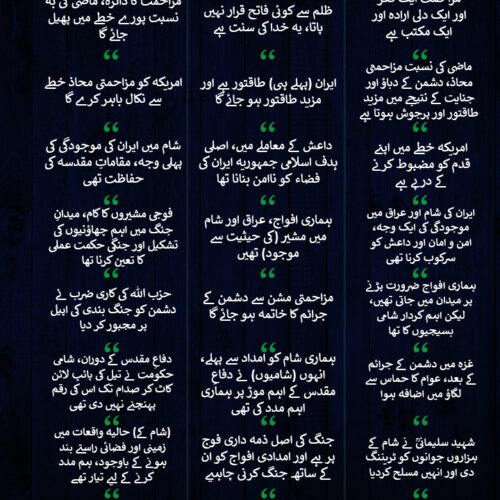 مزاحمت ایک فکر
اور ایک دلی ارادہ اور
ایک مکتب ہے
ماضی کی نسبت مزاحمتی
محاذ، دشمن کے دباؤ اور
جنایت کے نتیجے میں مزید
طاقتور اور پرجوش ہوتا ہے
امریکہ خطے میں اپنے
قدم کو مضبوط کرنے
کے درپے ہے
ایران کی شام اور عراق میں
موجودگی کی ایک وجہ،
امن و امان اور داعش کو
سرکوب کرنا تھی
ہماری افواج ضرورت پڑنے
پر میدان میں جاتی تھیں،
لیکن اہم کردار شامی
بسیجیوں کا تھا
غزہ میں دشمن کے جرائم
کے بعد، عوام کا حماس سے
لگاؤ میں اضافہ ہوا
شہید سلیمانیؒ نے شام کے
ہزاروں جوانوں کو ٹریننگ
دی اور انہیں مسلح کردیا
ظلم سے کوئی فاتح قرار نہیں
پاتا، یہ خدا کی سنت ہے
ایران (پہلے ہی) طاقتور ہے اور
مزید طاقتور ہو جائے گا
داعش کے معاملے میں، اصلی
ہدف اسلامی جمہوریہ ایران کی
فضاء کو ناامن بنانا تھا
ہماری افواج، عراق اور شام
میں مشیر (کی حیثیت سے
موجود) تھیں
مزاحمتی مشن سے دشمن کے
جرائم کا خاتمہ ہو جائے گا
ہماری شام کو امداد سے پہلے،
انہوں (شامیوں) نے دفاع
مقدس کے اہم موڑ پر ہماری
اہم مدد کی تھی
جنگ کی اصل ذمہ داری فوج
پر ہے اور امدادی افواج کو ان
کے ساتھ جنگ کرنی چاہیے
مزاحمت کا دائرہ، ماضی کی بہ
نسبت پورے خطے میں پھیل
جائے گا
امریکہ کو مزاحمتی محاذ خطے
سے نکال باہر کرے گا
شام میں ایران کی موجودگی کی
پہلی وجہ، مقاماتِ مقدسہ کی
حفاظت تھی
فوجی مشیروں کا کام، میدانِ
جنگ میں اہم چھاؤنیوں کی
تشکیل اور جنگی حکمت عملی
کا تعین کرنا تھا
حزب اللہ کی کاری ضرب نے
دشمن کو جنگ بندی کی اپیل
پر مجبور کر دیا
دفاع مقدس کے دوران، شامی
حکومت نے تیل کی پائپ لائن
کاٹ کر صدام تک اس کی رقم
پہنچنے نہیں دی تھی
(شام کے) حالیہ واقعات میں
زمینی اور فضائی راستے بند
ہونے کے باوجود، ہم مدد
کرنے کے لیے تیار تھے